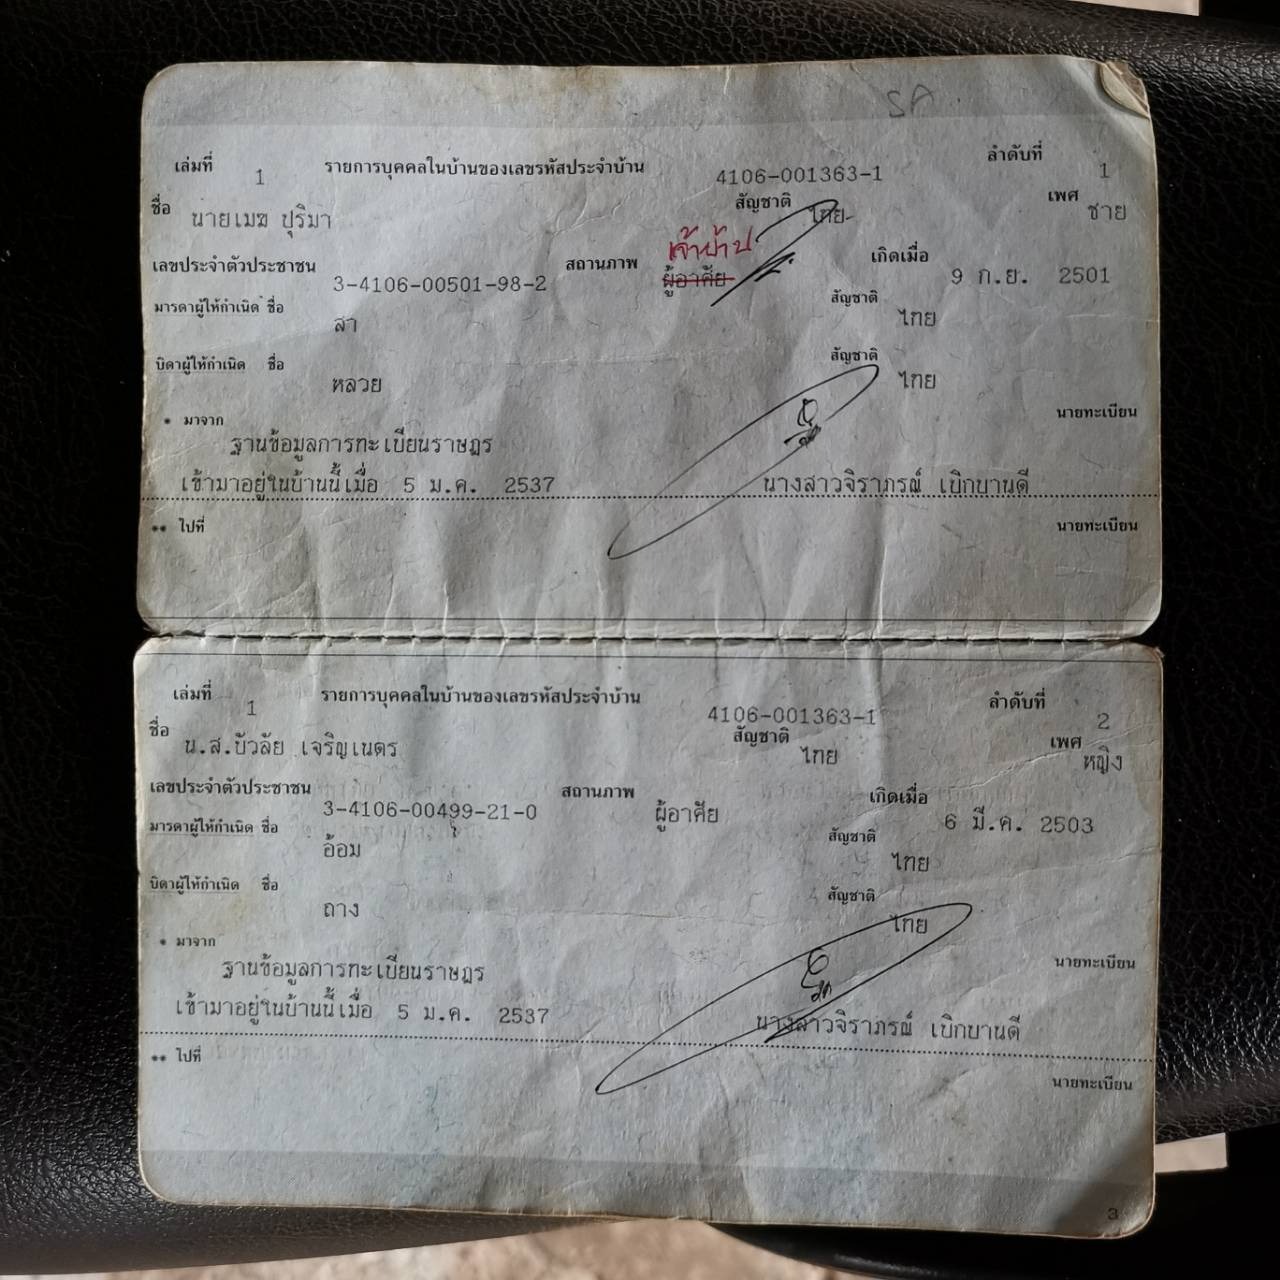 SA
เล่มที่ 1 รายการบุคคลในบ้านของเลขรหัสประจำบ้าน 4106-001363-1 ลำดับที่ 1
ชื่อ นายเมฆ ปุริมา สัญชาติ ไทย เพศ ชาย
เจ้าบ้าน
เลขประจำตัวประชาชน 3-4106-00501-98-2 สถานภาพ ผู้อาศัย เกิดเมื่อ 9 ก.ย. 2501
มารดาผู้ให้กำเนิด ชื่อ ลา สัญชาติ ไทย
บิดาผู้ให้กำเนิด ชื่อ หลวย สัญชาติ ไทย
* มาจาก นายทะเบียน
ฐานข้อมูลการทะเบียนราษฎร
เข้ามาอยู่ในบ้านนี้เมื่อ 5 ม.ค. 2537 นางสาวจิราภรณ์ เบิกบานดี
** ไปที่ นายทะเบียน
เล่มที่ 1 รายการบุคคลในบ้านของเลขรหัสประจำบ้าน 4106-001363-1 ลำดับที่ 2
ชื่อ น.ส.บัวลัย เจริญเนตร สัญชาติ ไทย เพศ หญิง
เลขประจำตัวประชาชน 3-4106-00499-21-0 สถานภาพ ผู้อาศัย เกิดเมื่อ 6 มี.ค. 2503
มารดาผู้ให้กำเนิด ชื่อ อ้อม สัญชาติ ไทย
บิดาผู้ให้กำเนิด ชื่อ ถาง สัญชาติ ไทย
* มาจาก นายทะเบียน
ฐานข้อมูลการทะเบียนราษฎร
เข้ามาอยู่ในบ้านนี้เมื่อ 5 ม.ค. 2537 นางสาวจิราภรณ์ เบิกบานดี
** ไปที่ นายทะเบียน
3